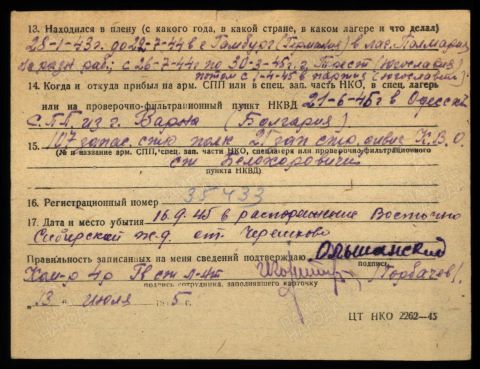 13. Находился в плену (с какого года, в какой стране, в каком лагере и что делал)
28-1-43г. до 22-7-44 в г. Гамбург (Германия) в лаг.
на разн. раб; с 26-7-44г по 30-3-45г. г. Трест (Югославия)
потом с 1-4-45 в партиз (югославии).
14. Когда и откуда прибыл на арм. СПП или в спец. зап. часть НКО, в спец. лагерь
или на проверочно-фильтрационный пункт НКВД 21-6-45г в Одесск
С.П.П из г. Варна (Болгария)
15. 107 запас. стр полк 21 зап стр дивиз Х.В.О.
(№ и название арм. СПП, спец. зап. части НКО, спецлагеря или проверочно-фильтрационного
ст
пункта НКВД)
16. Регистрационный номер 35433
17. Дата и место убытия 16.9.45 в распоряжение Восточно
Сибирской ж.д ст. Черемхово
Правильность записанных на меня сведений подтверждаю Ольшанский
подпись
Ком-р 4р Гв ст л-нт (Горбачев).
подпись сотрудника, заполнявшего карточку
"13" июля 5 г.
ЦТ НКО 2262-45